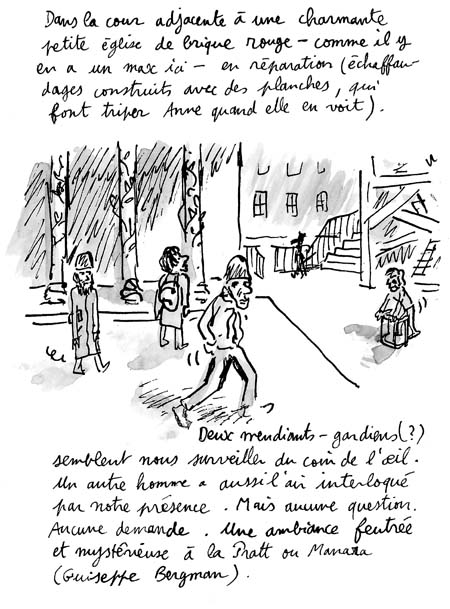 Dans la cour adjacente à une charmante
petite église de brique rouge – comme il y
en a un max ici – en réparation (échaffau-
dages construits avec des planches, qui
font triper Anne quand elle en voit).
Deux mendiants – gardiens (?)
semblent nous surveiller du coin de l'œil.
Un autre homme a aussi l'air interloqué
par notre présence. Mais aucune question.
Aucune demande. Une ambiance feutrée
et mystérieuse à la Pratt ou Manara
(Guiseppe Bergman).